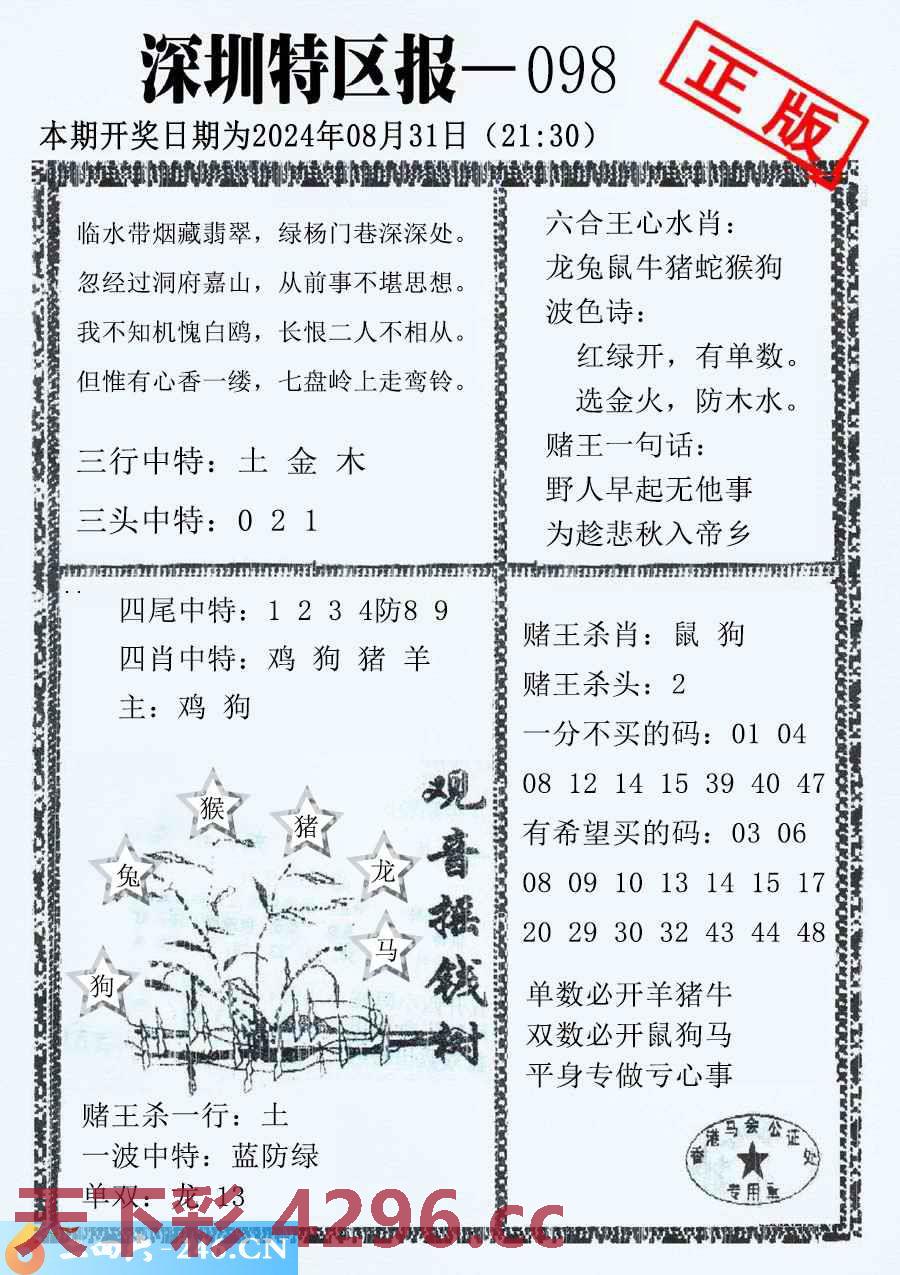 深圳特区报—098
正版
本期开奖日期为2024年08月31日（21:30）
临水带烟藏翡翠，绿杨门巷深深处。
忽经过洞府嘉山，从前事不堪思想。
我不知机愧白鸥，长恨二人不相从。
但惟有心香一缕，七盘岭上走鸾铃。
三行中特：土 金 木
三头中特：0 2 1
六合王心水肖：
龙兔鼠牛猪蛇猴狗
波色诗：
红绿开，有单数。
选金火，防木水。
赌王一句话：
野人早起无他事
为趁悲秋入帝乡
四尾中特：1 2 3 4防8 9
四肖中特：鸡 狗 猪 羊
主：鸡 狗
观音摇钱树
猴
猪
兔
龙
马
狗
赌王杀一行：土
一波中特：蓝防绿
单双：龙 13
赌王杀肖：鼠 狗
赌王杀头：2
一分不买的码：01 04
08 12 14 15 39 40 47
有希望买的码：03 06
08 09 10 13 14 15 17
20 29 30 32 43 44 48
单数必开羊猪牛
双数必开鼠狗马
平身专做亏心事
香港马会公证处
专用章
天下彩 4296.cc
246.CN